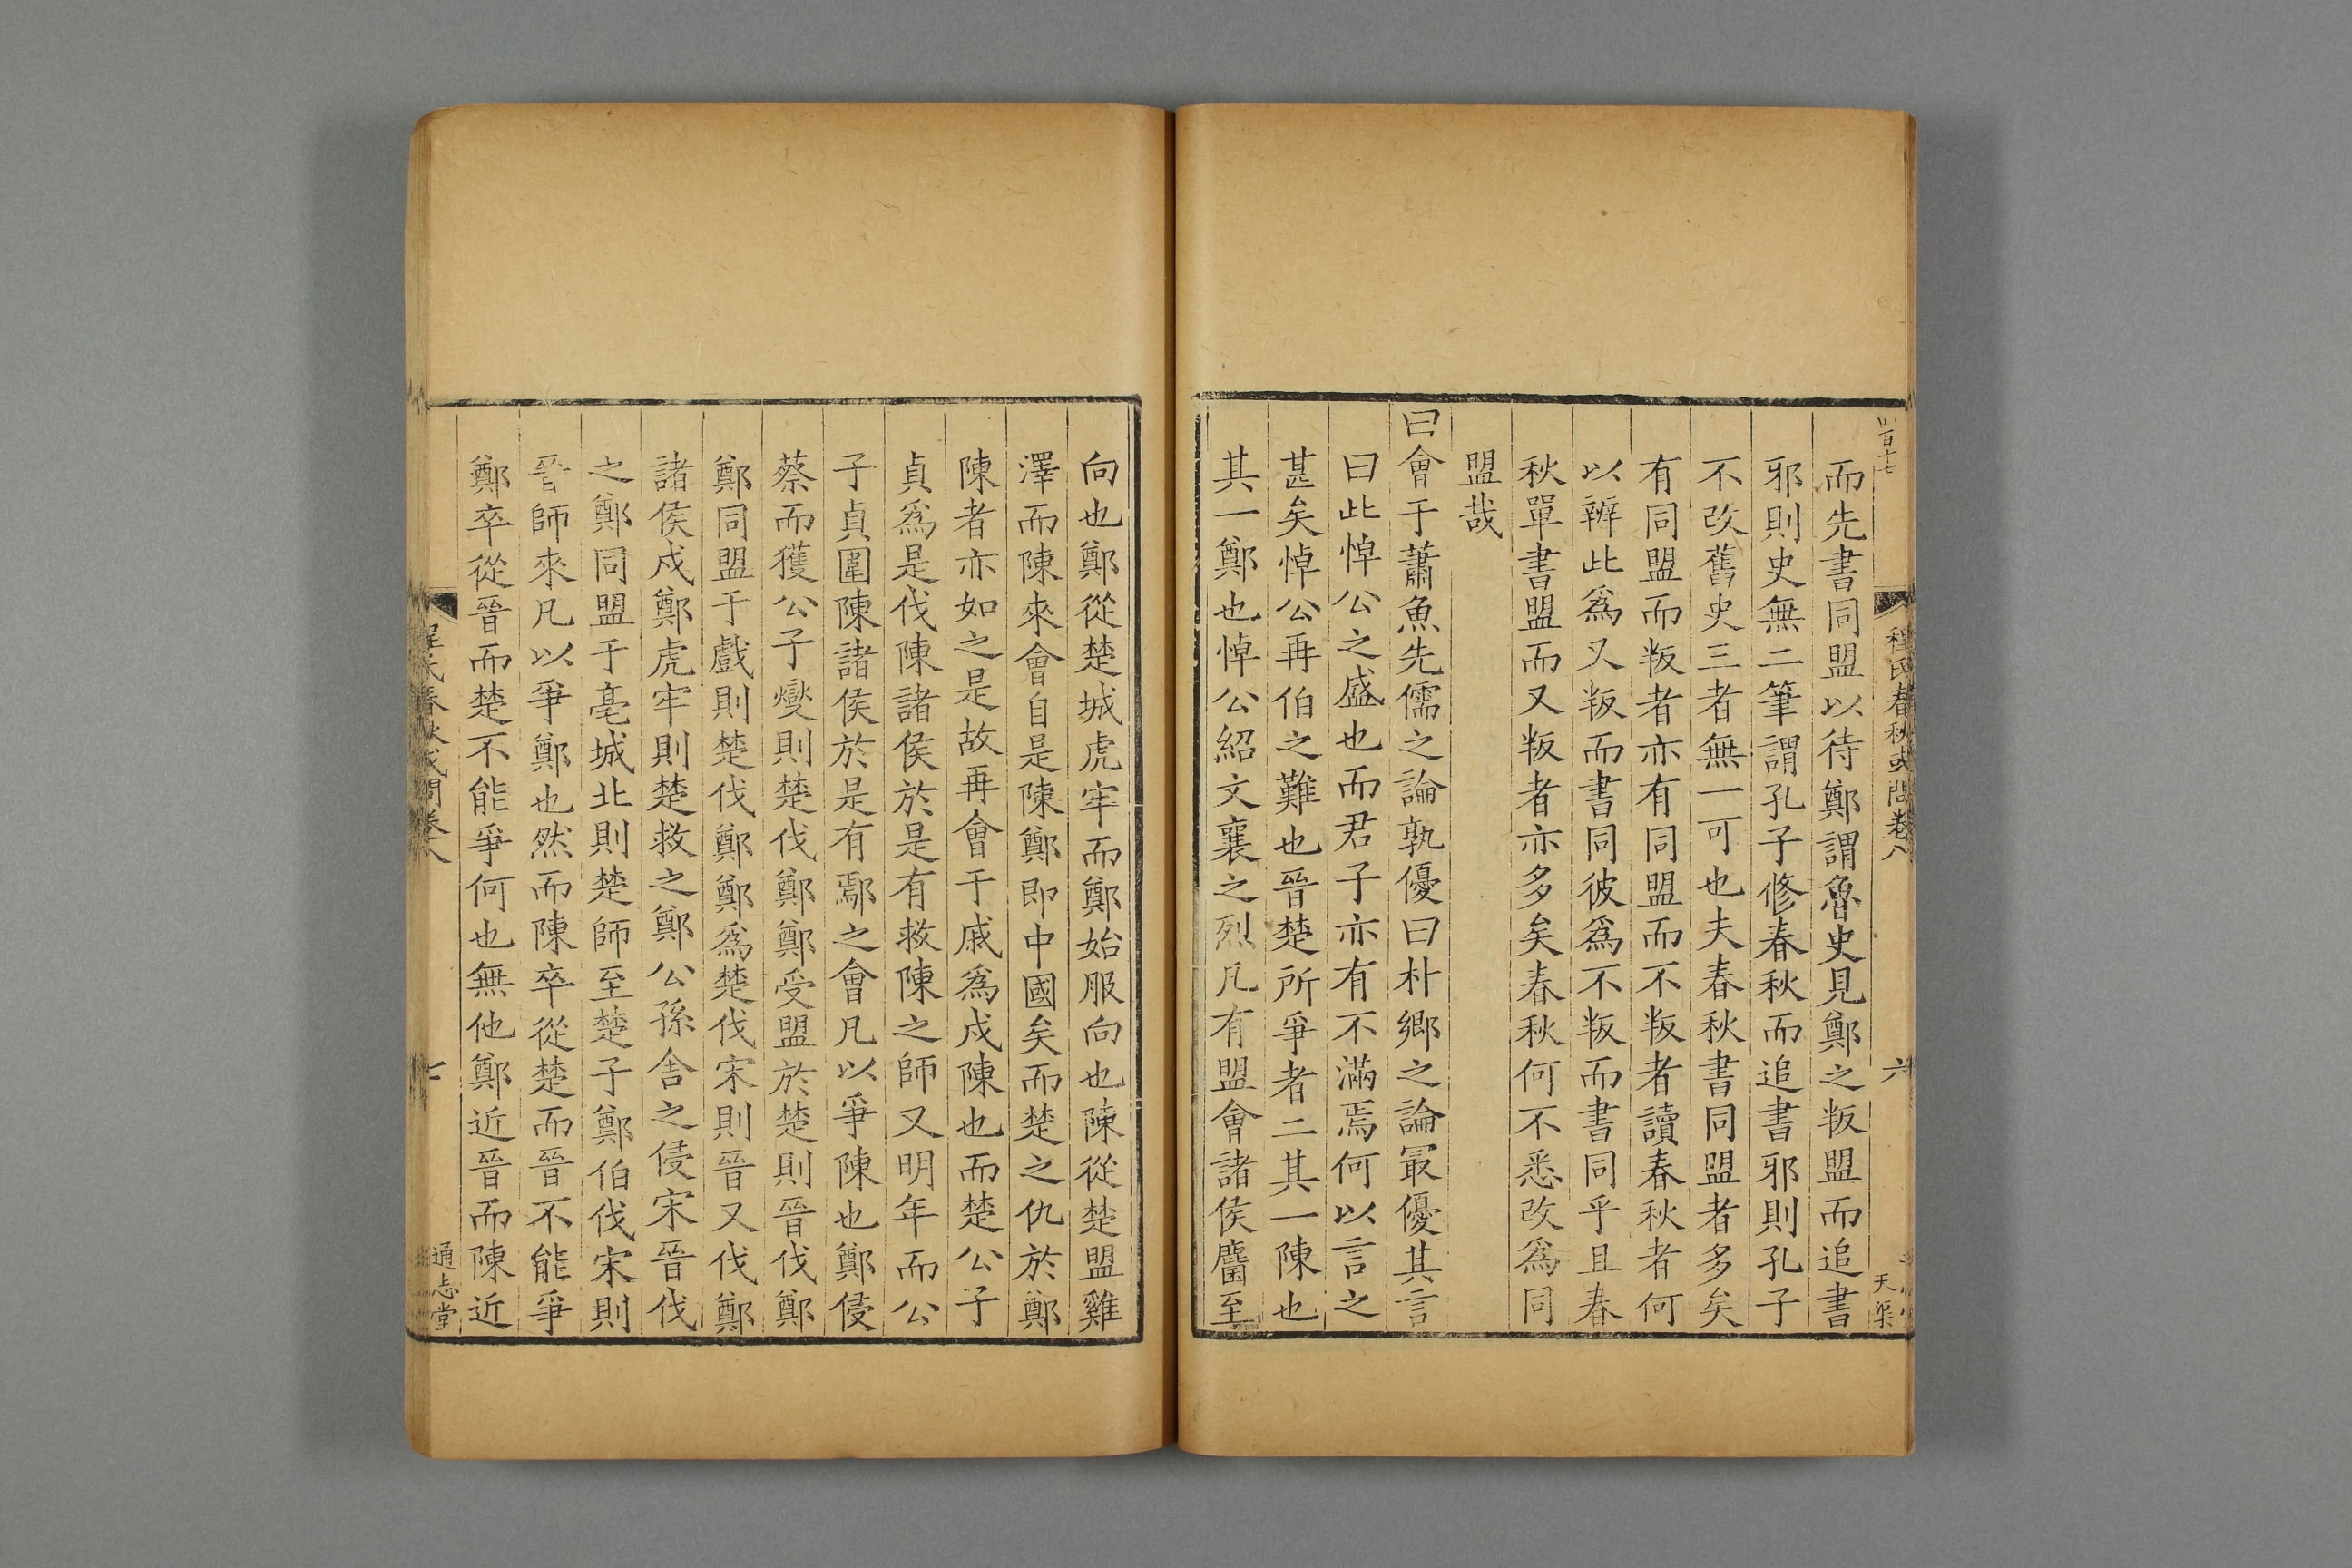 程氏春秋或問卷八
六
天渠
而先書同盟以待鄭謂魯史見鄭之叛盟而追書
邪則史無二筆謂孔子修春秋而追書邪則孔子
不改舊史三者無一可也夫春秋書同盟者多矣
有同盟而叛者亦有同盟而不叛者讀春秋者何
以辨此爲又叛而書同彼爲不叛而書同乎且春
秋單書盟而又叛者亦多矣春秋何不悉改爲同
盟哉
曰會于蕭魚先儒之論孰優曰朴鄉之論㝡優其言
曰此悼公之盛也而君子亦有不滿焉何以言之
甚矣悼公再伯之難也晉楚所爭者二其一陳也
其一鄭也悼公紹文襄之烈凡有盟會諸侯麕至
向也鄭從楚城虎牢而鄭始服向也陳從楚盟雞
澤而陳來會自是陳鄭即中國矣而楚之仇於鄭
陳者亦如之是故再會于戚爲戍陳也而楚公子
貞爲是伐陳諸侯於是有救陳之師又明年而公
子貞圍陳諸侯於是有鄬之會凡以爭陳也鄭侵
蔡而獲公子燮則楚伐鄭鄭受盟於楚則晉伐鄭
鄭同盟于戲則楚伐鄭鄭爲楚伐宋則晉又伐鄭
諸侯戍鄭虎牢則楚救之鄭公孫舍之侵宋晉伐
之鄭同盟于亳城北則楚師至楚子鄭伯伐宋則
晉師來凡以爭鄭也然而陳卒從楚而晉不能爭
鄭卒從晉而楚不能爭何也無他鄭近晉而陳近
程氏春秋或問卷八
七
通志堂